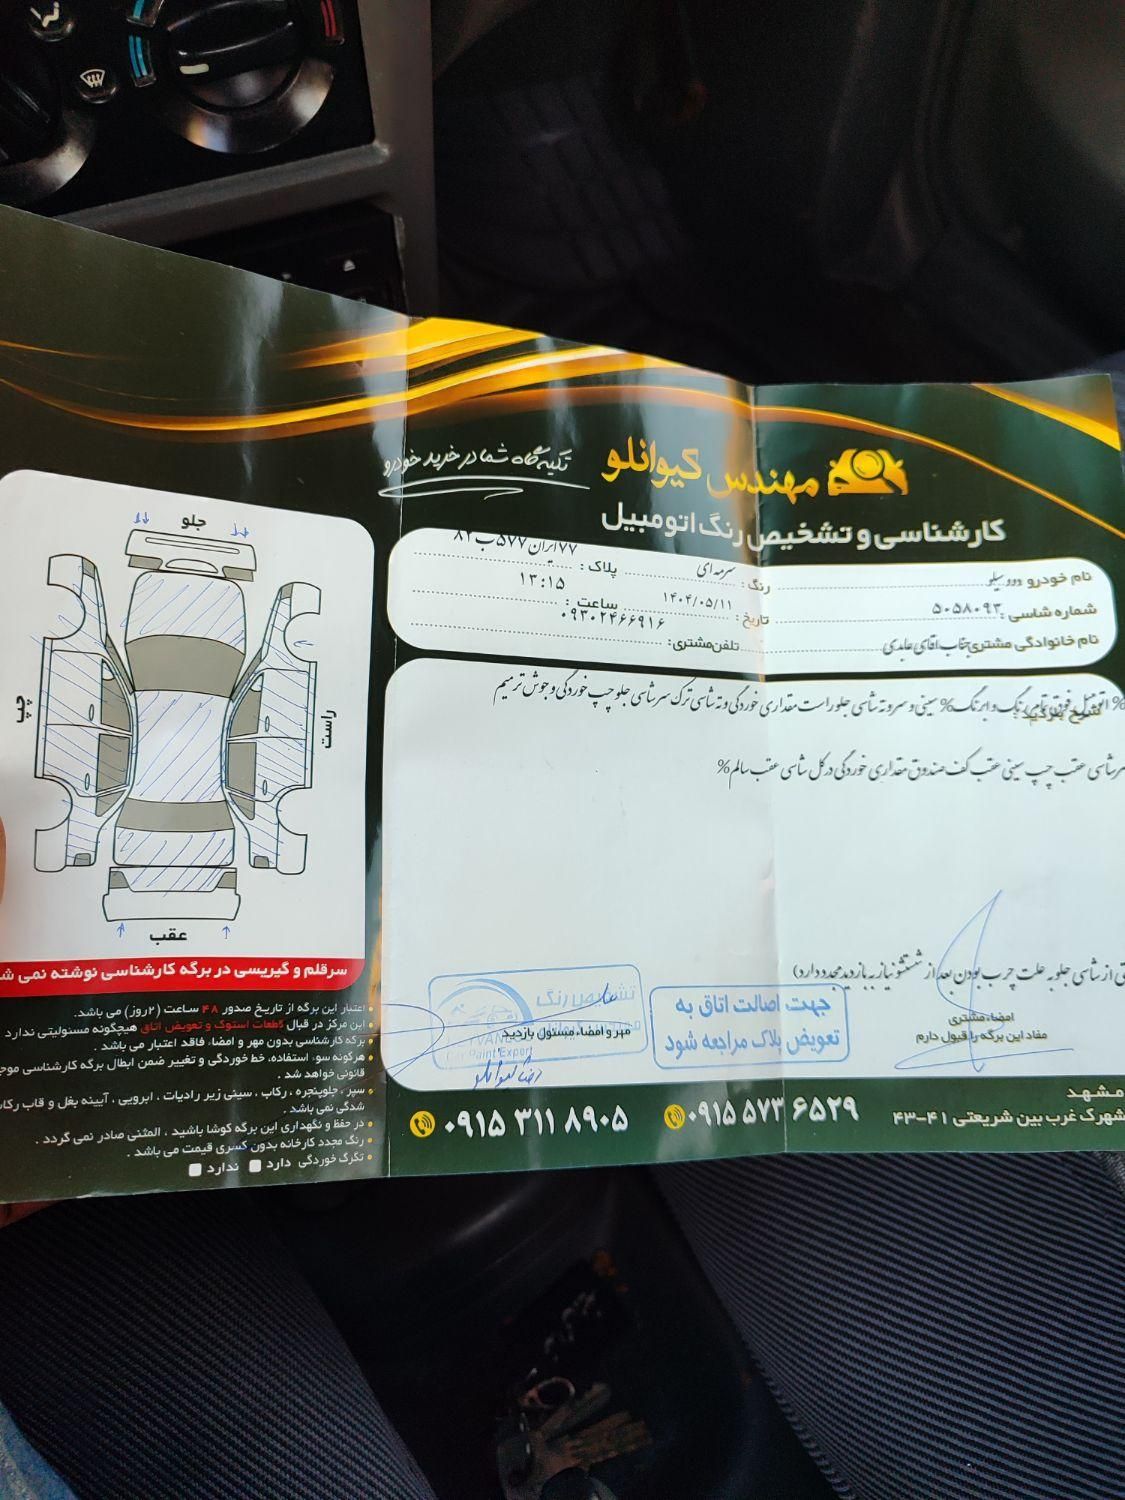 تکیه گاه شما در خرید خودرو
مهندس کیوانلو
کارشناسی و تشخیص رنگ اتومبیل
نام خودرو دوو سیلو
رنگ: سرمه ای
پلاک: ۷۷ایران۵۷۷ب۸۲
شماره شاسی: ۵۰۵۸۰۹۳
تاریخ: ۱۴۰۴/۰۵/۱۱
ساعت: ۱۳:۱۵
نام خانوادگی مشتری جناب اقای عابدی
تلفن مشتری: ۰۹۳۰۲۴۶۶۹۱۶
% اتومبیل فوق تمام رنگ و ابرنگ% سینی و سروته شاسی جلو راست مقداری خوردگی و ته شاسی ترک سرشاسی جلو چپ خوردگی و جوش ترمیم
سرشاسی عقب چپ سینی عقب کف صندوق مقداری خوردگی در کل شاسی عقب سالم%
از شاسی جلو به علت چرب بودن بعد از شستشو نیاز به بازدید مجدد دارد)
جلو
چپ
راست
عقب
سرقلم و گیریسی در برگه کارشناسی نوشته نمی ش
اعتبار این برگه از تاریخ صدور ۴۸ ساعت (۲روز) می باشد.
این مرکز در قبال قطعات استوک و تعویض اتاق هیچگونه مسئولیتی ندارد
برگه کارشناسی بدون مهر و امضاء فاقد اعتبار می باشد.
هرگونه سوء استفاده، خط خوردگی و تغییر ضمن ابطال برگه کارشناسی موج
قانونی خواهد شد.
سپر، جلوپنجره، رکاب، سینی زیر رادیات، ابرویی، آیینه بغل و قاب رکاب
شدگی نمی باشد.
در حفظ و نگهداری این برگه کوشا باشید، المثنی صادر نمی گردد.
رنگ مجدد کارخانه بدون کسری قیمت می باشد.
تگرگ خوردگی دارد ندارد
تشخیص رنگ
Car Paint Expert
مهر و امضاء مسئول بازدید
جهت اصالت اتاق به
تعویض پلاک مراجعه شود
امضاء مشتری
مفاد این برگه را قبول دارم
۰۹۱۵ ۳۱۱ ۸۹۰۵
۰۹۱۵ ۵۷۳ ۶۵۲۹
مشهد
شهرک غرب بین شریعتی ۴۱-۴۳